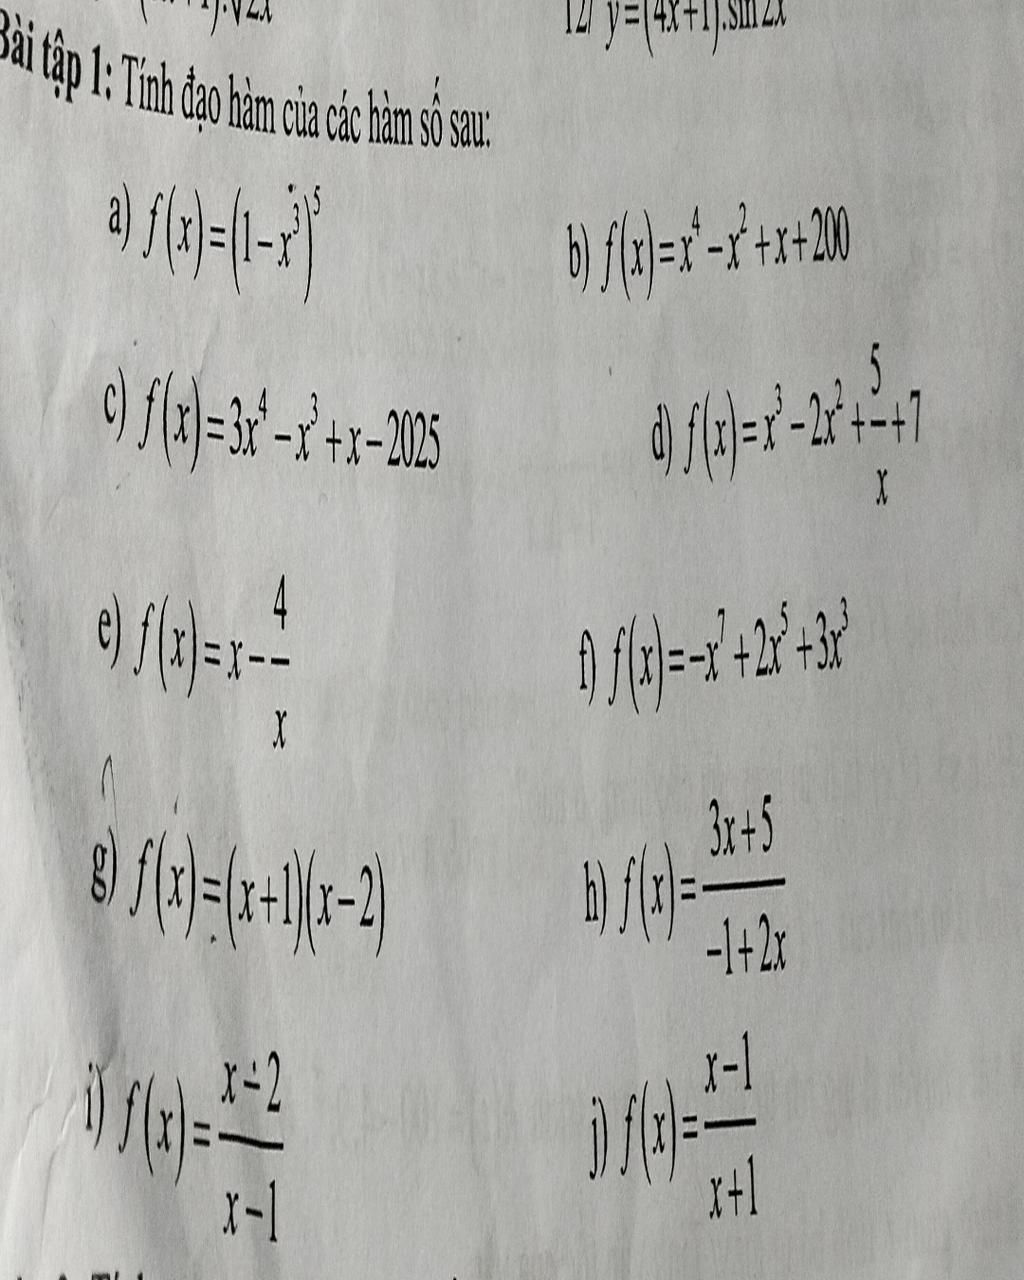 12/ y=(4x+1).sin2x
Bài tập 1: Tính đạo hàm của các hàm số sau:
a) f(x)=(1-x³)⁵
b) f(x)=x⁴-x²+x+200
c) f(x)=3x⁴-x³+x-2025
d) f(x)=x³-2x²+5/x+7
e) f(x)=x-4/x
f) f(x)=-x⁷+2x⁵+3x³
g) f(x)=(x+1)(x-2)
h) f(x)=(3x+5)/(-1+2x)
i) f(x)=(x-2)/(x-1)
j) f(x)=(x-1)/(x+1)